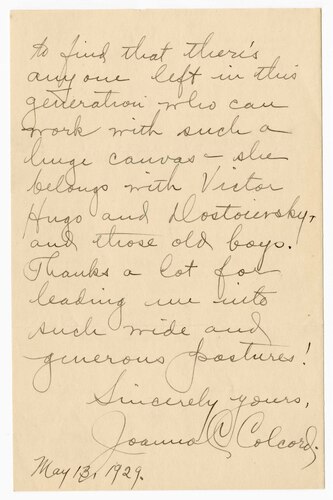 to find that there's
anyone left in this
generation who can
work with such a
huge canvas – she
belongs with Victor
Hugo and Dostoievsky,
and those old boys.
Thanks a lot for
leading me into
such wide and
generous pastures!
Sincerely yours,
Joanna C. Colcord.
May 13, 1929.